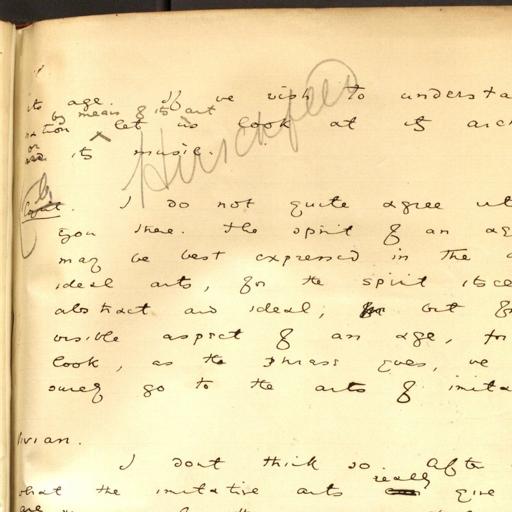 its age. If we wish to understa
by means of its art
nation let us look at its arch
or its music.
Hirschfeld
Cyril. I do not quite agree wit
you there. The spirit of an ag
may be best expressed in the a
ideal arts, for the spirit itse
abstract and ideal; but fo
visible aspect of an age, for
look, as the phrase goes, we
surely go to the arts of imita
ivian.
I dont think so. After
really
what the imitative arts give
are